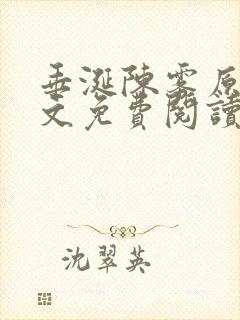 垂涎陳雾原
文免費閱讀
沈翠英